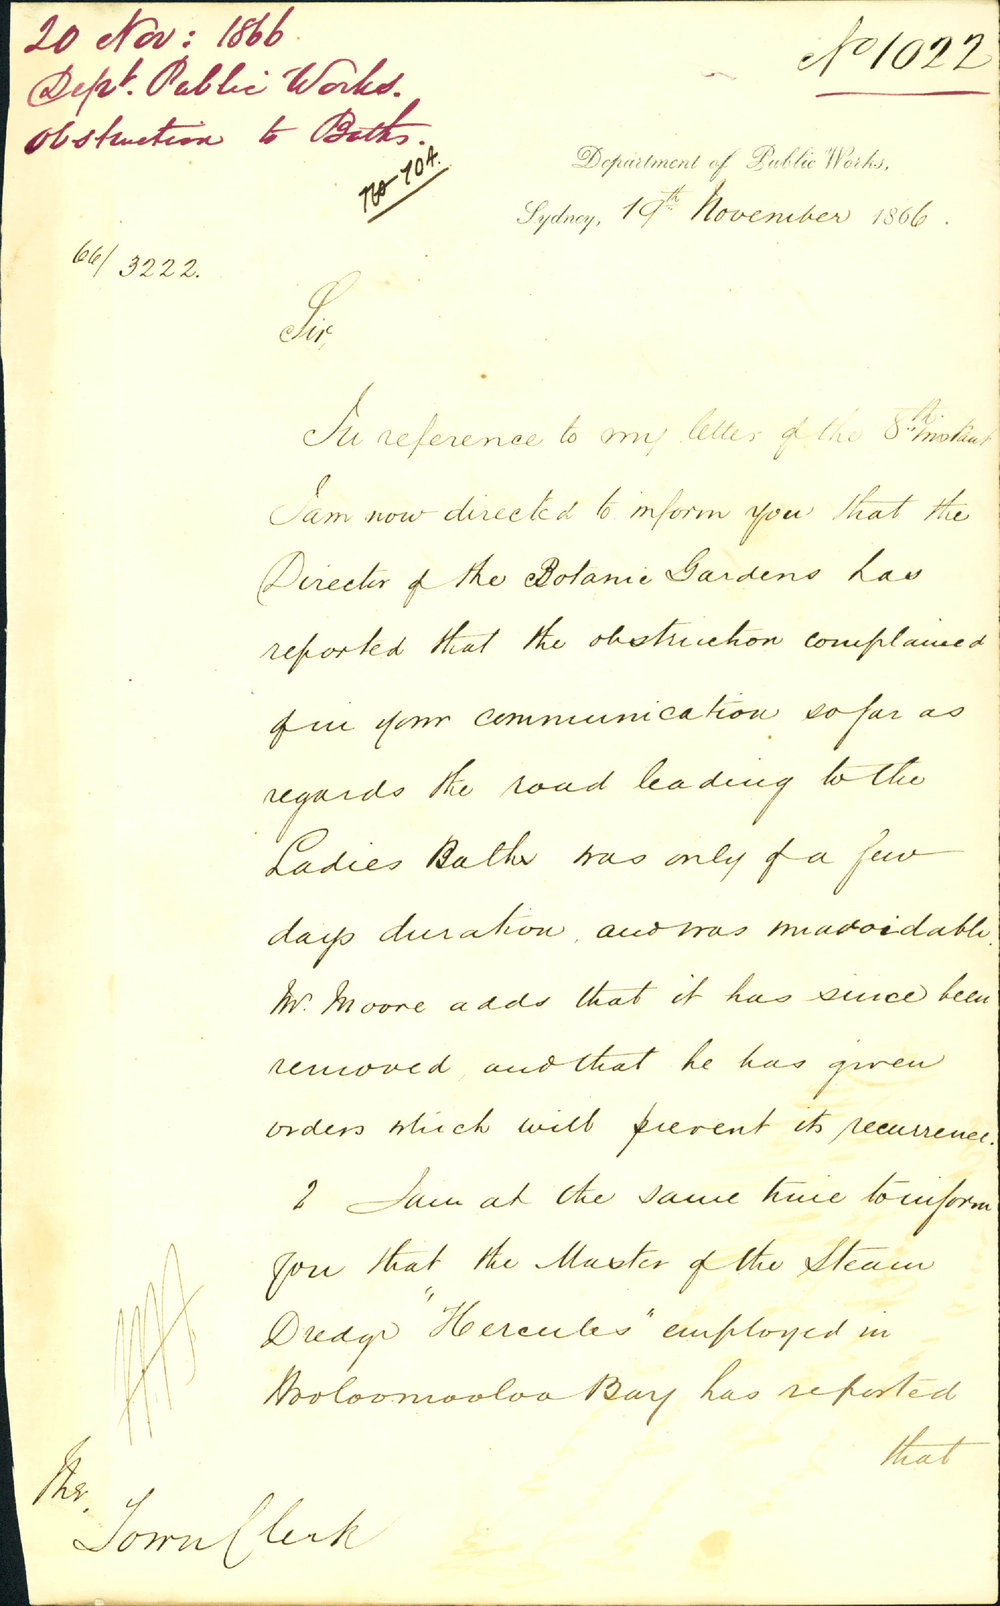 20 Nov: 1866
Dept. Public Works.
Obstruction to Baths.
No 704.
No 1022
Department of Public Works,
Sydney, 19th November 1866.
66/3222.
Sir,
In reference to my letter of the 8th Instant
I am now directed to inform you that the
Director of the Botanic Gardens has
reported that the obstruction complained
of in your communication so far as
regards the road leading to the
Ladies Baths was only of a few
days duration, and was unavoidable.
Mr. Moore adds that it has since been
removed, and that he has given
orders which will prevent its recurrence.
2 I am at the same time to inform
you that the Master of the Steam
Dredge "Hercules" employed in
Wooloomooloo Bay has reported
that
The
Town Clerk